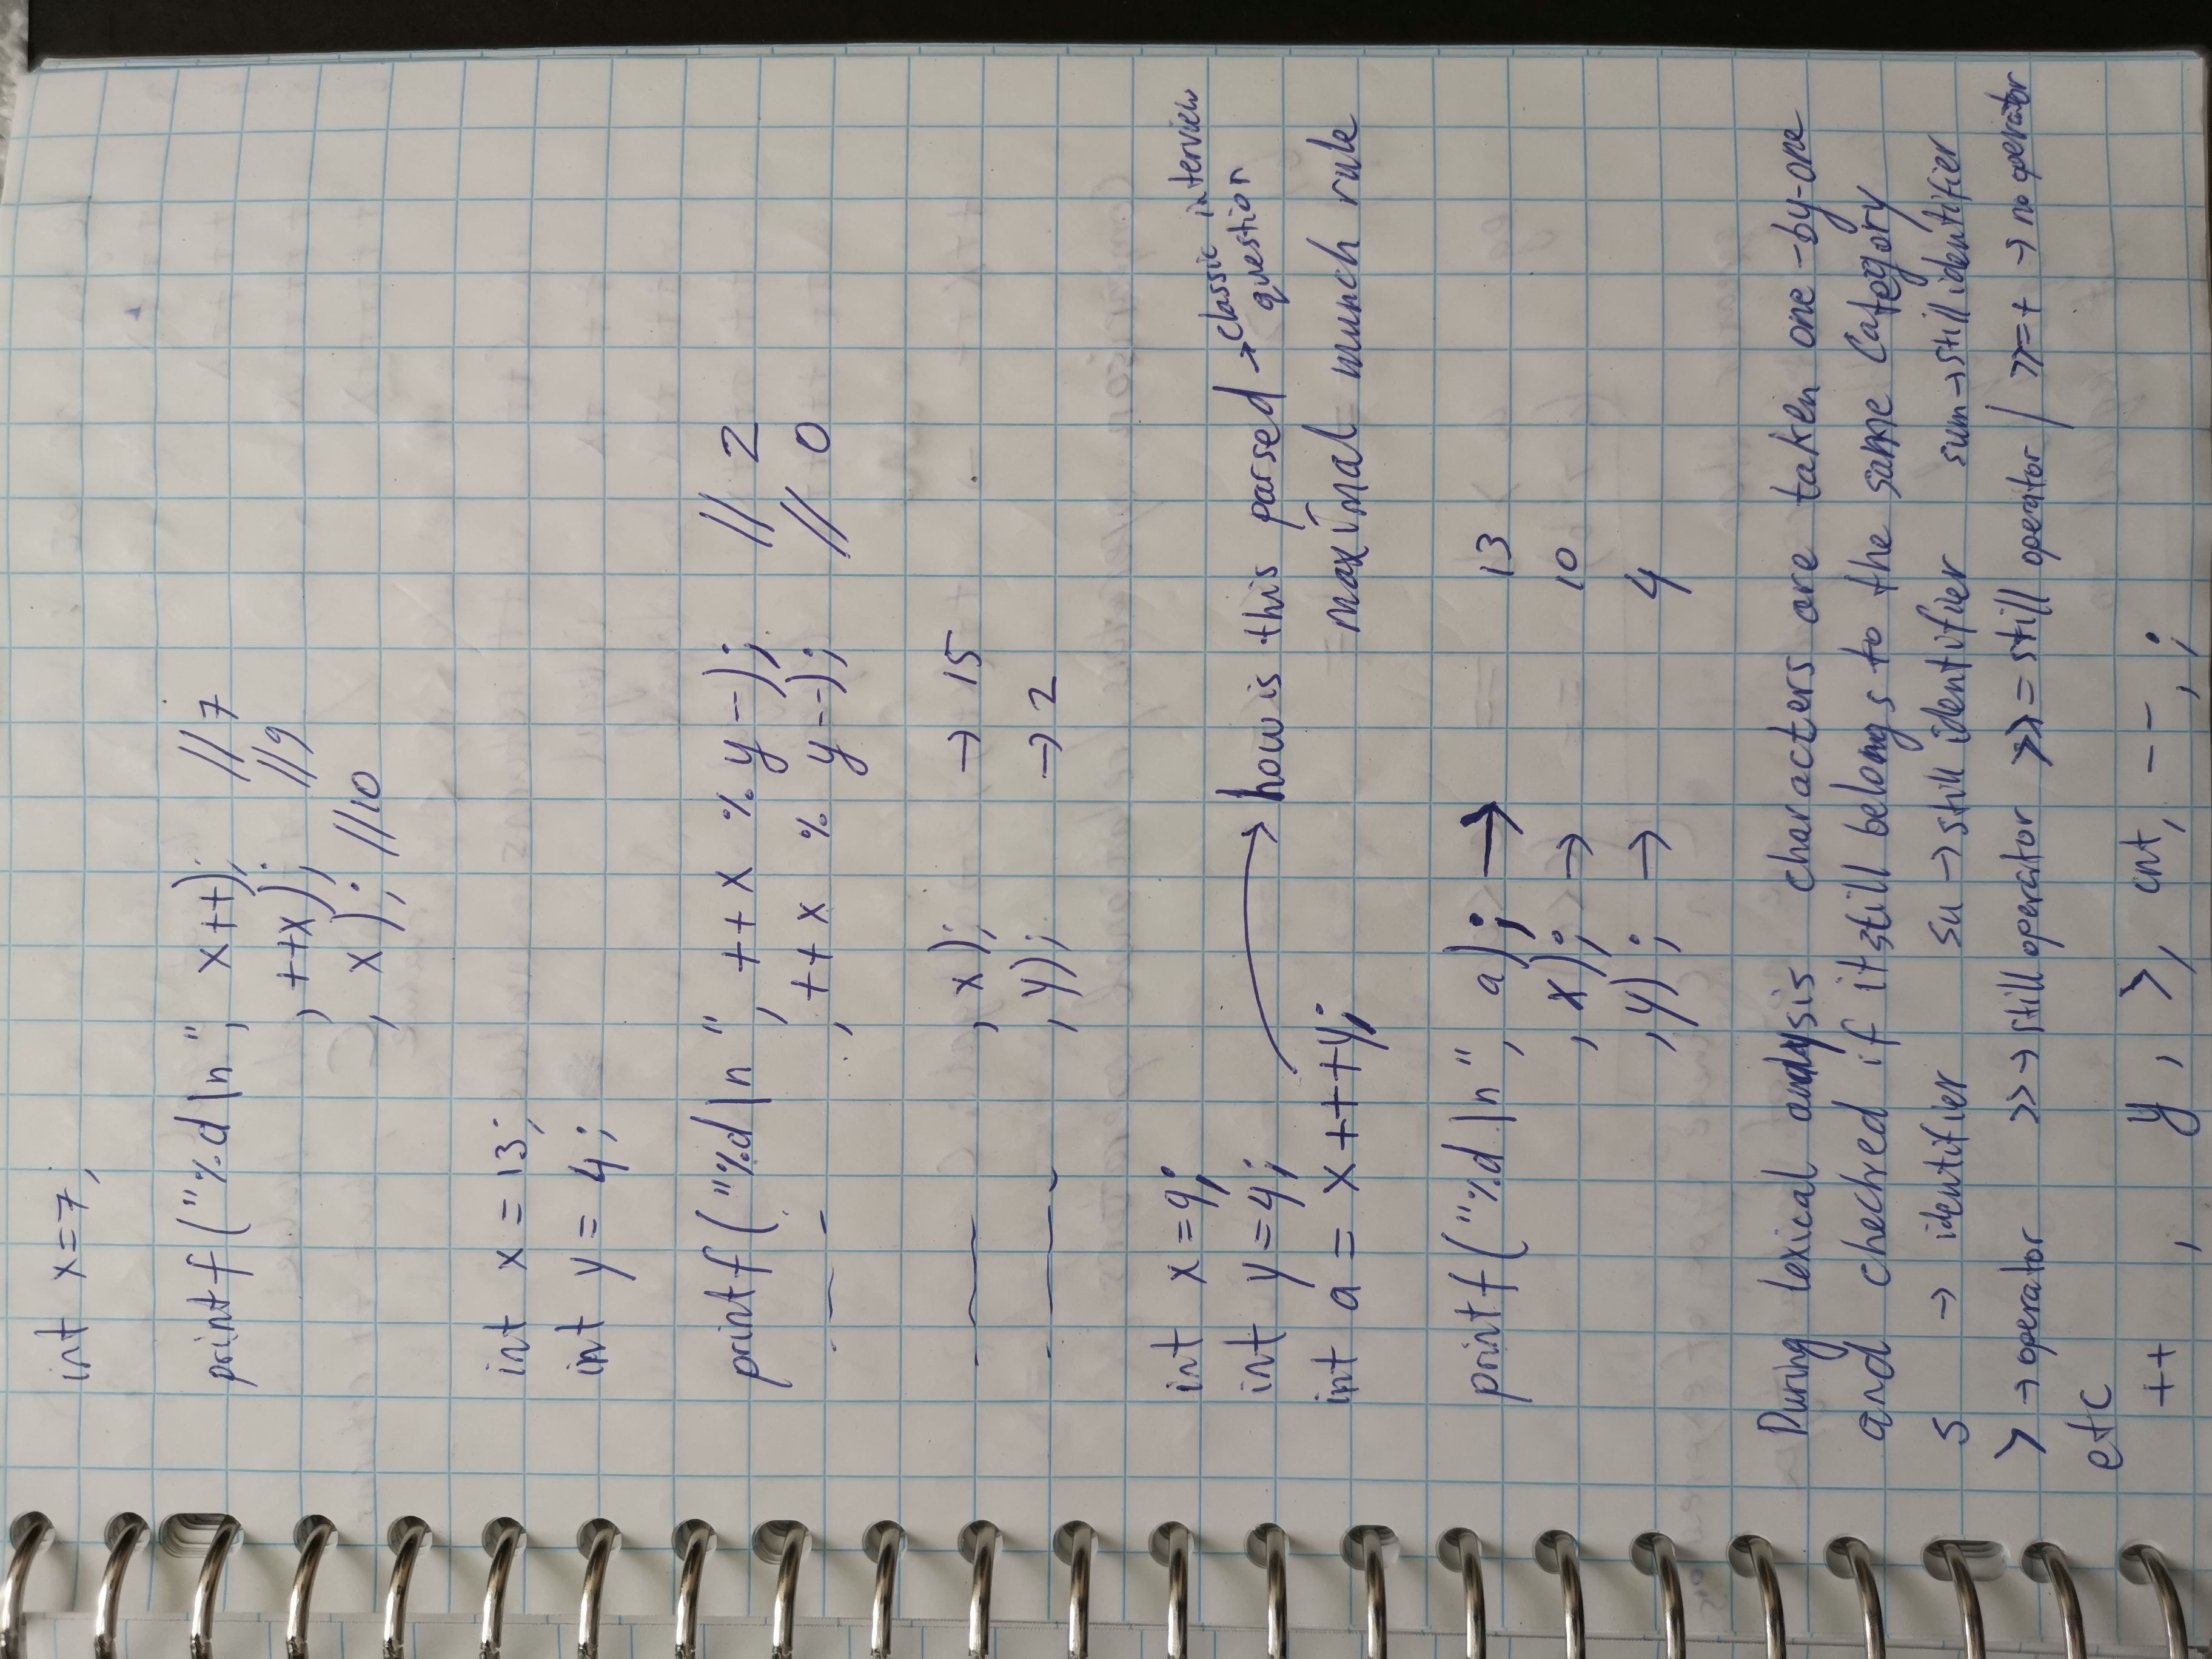 int x=7;
printf("%d\n", x++); //7
, ++x); //9
, x); //10
int x = 13;
int y = 4;
printf("%d\n", ++x % y--); // 2
, ++x % y--); // 0
, x); → 15
, y); → 2
int x = 9;
int y = 4; how is this parsed → classic interview question
int a = x+++y; maximal munch rule
printf("%d\n", a); → 13
, x); → 10
, y); → 4
During lexical analysis characters are taken one-by-one
and checked if it still belongs to the same Category
s → identifier su → still identifier sum → still identifier
> → operator >> → still operator >>= still operator / >>=+ → no operator
etc
++ , y , >, cnt, --, ;